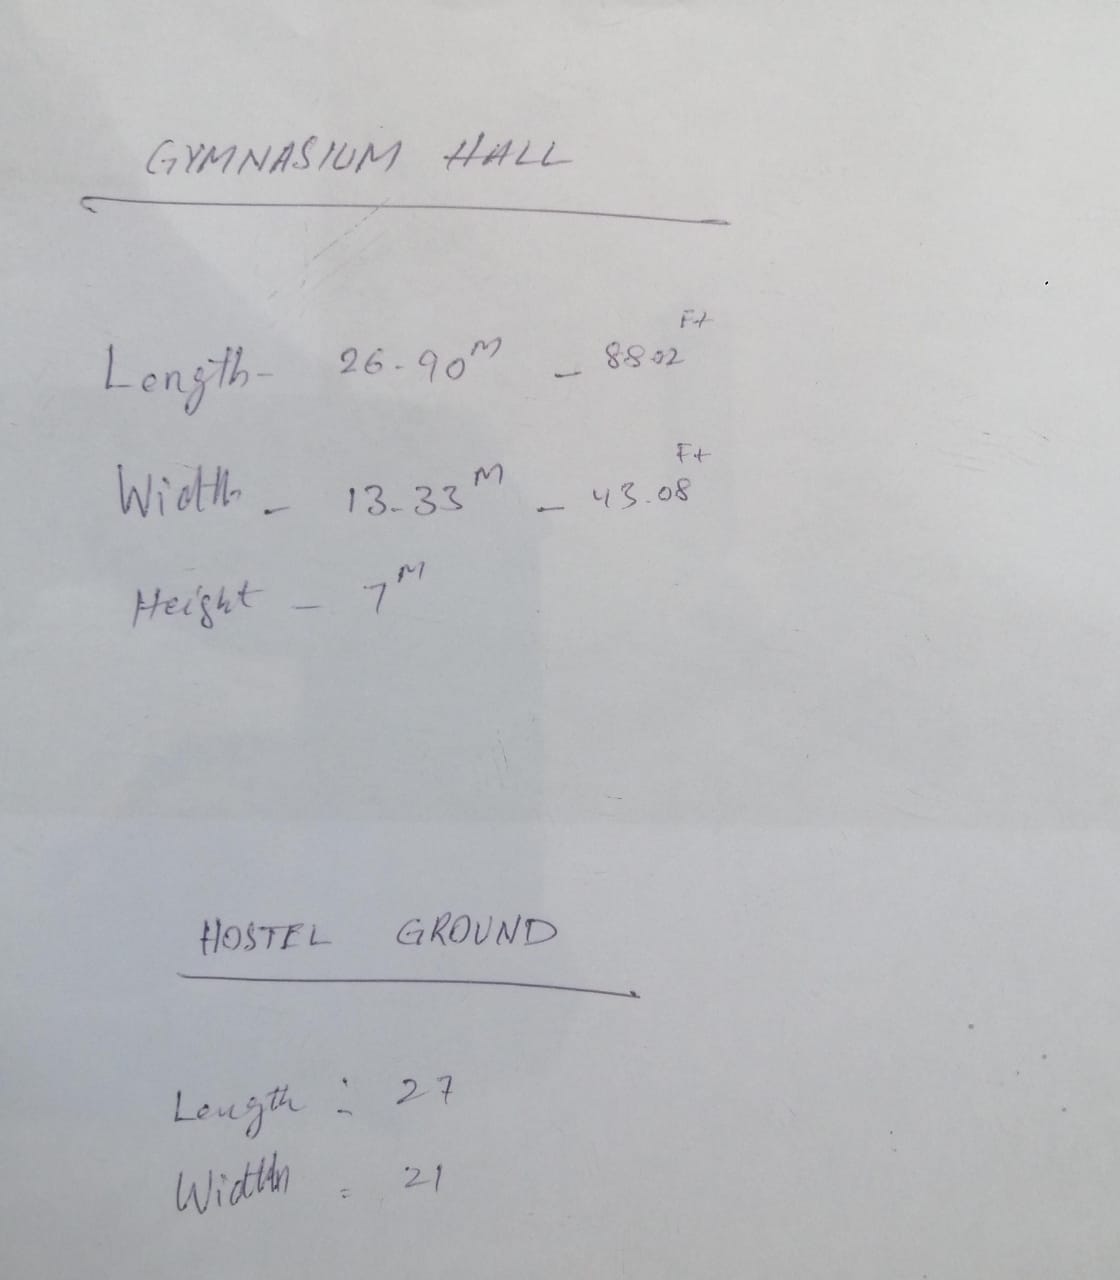 GYMNASIUM HALL
Length- 26.90 M - 88.02 Ft
Width - 13.33 M - 43.08 Ft
Height - 7 M
HOSTEL GROUND
Length : 27
Width = 21